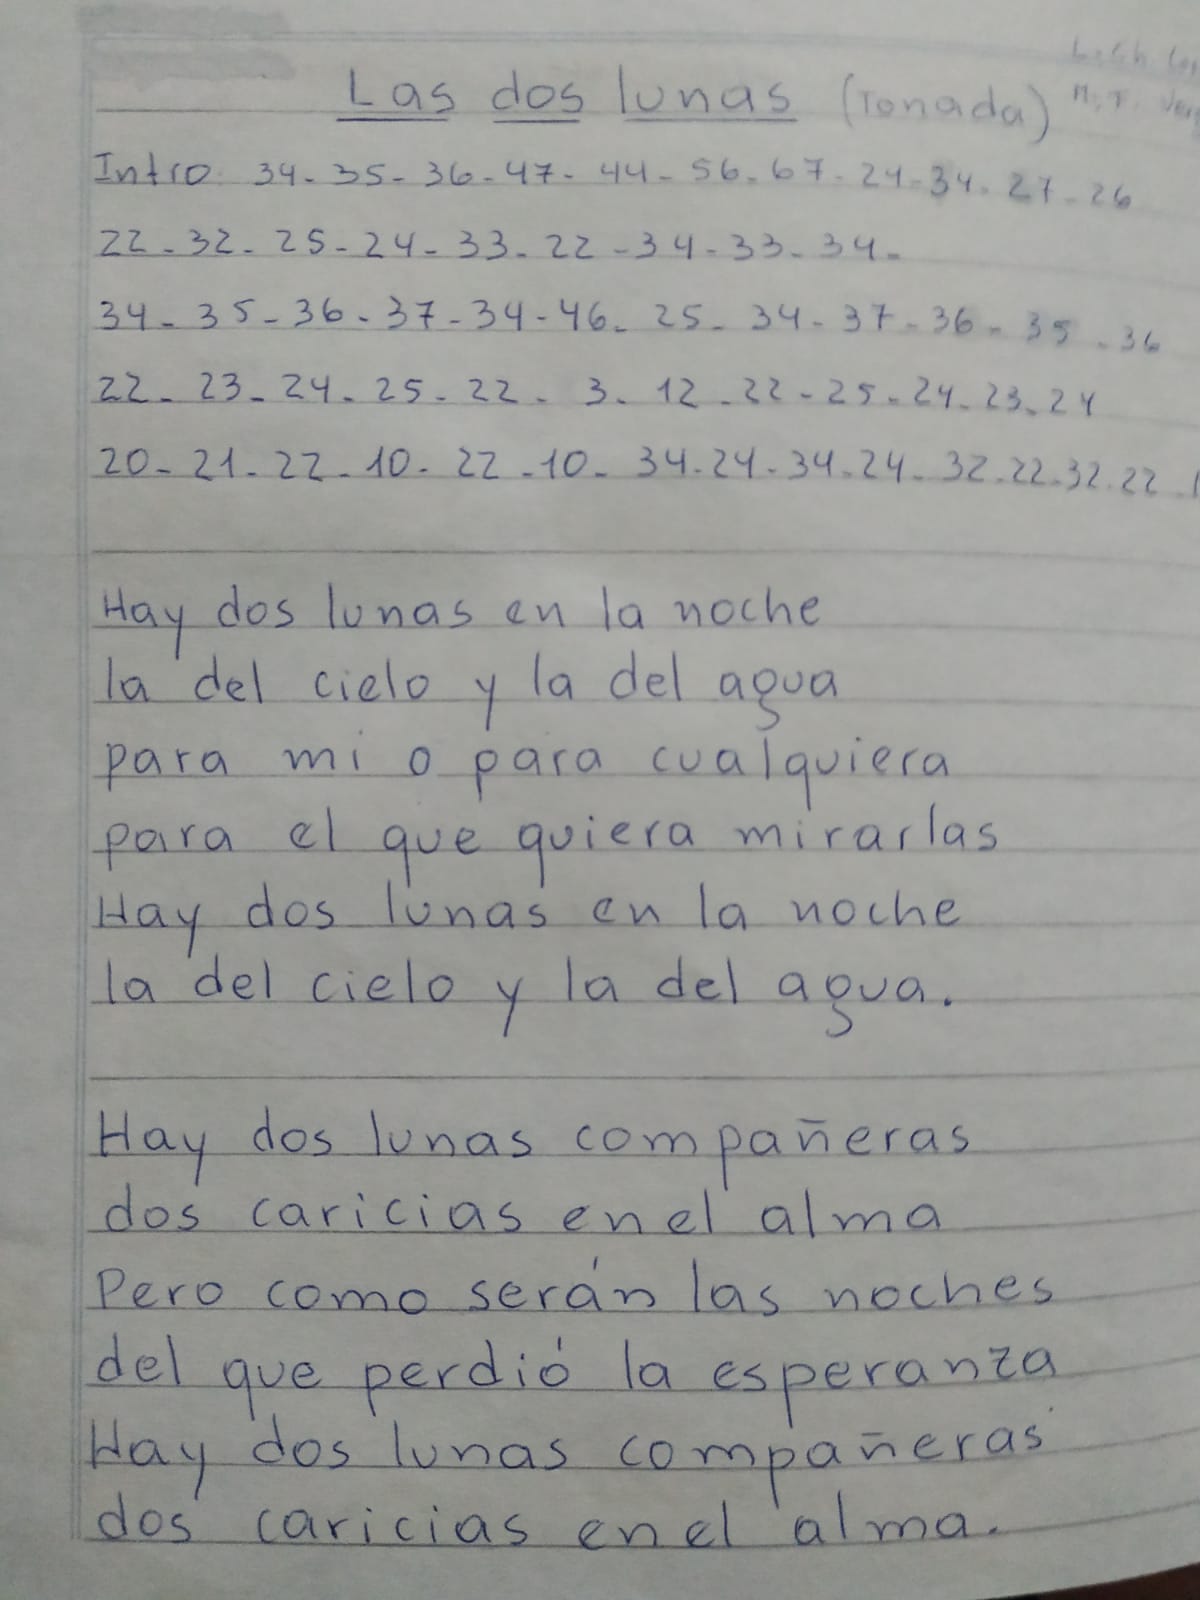 Las dos lunas (Tonada)
Intro 34-35-36-47-44-56-67-24-34-27-26
22-32-25-24-33-22-34-33-34-
34-35-36-37-34-46-25-34-37-36-35-36
22-23-24-25-22-3-12-22-25-24-23-24
20-21-22-10-22-10-34-24-34-24-32-22-32-22-1
Hay dos lunas en la noche
la del cielo y la del agua
para mi o para cualquiera
para el que quiera mirarlas
Hay dos lunas en la noche
la del cielo y la del agua.
Hay dos lunas compañeras
dos caricias en el alma
Pero como serán las noches
del que perdió la esperanza
Hay dos lunas compañeras
dos caricias en el alma.